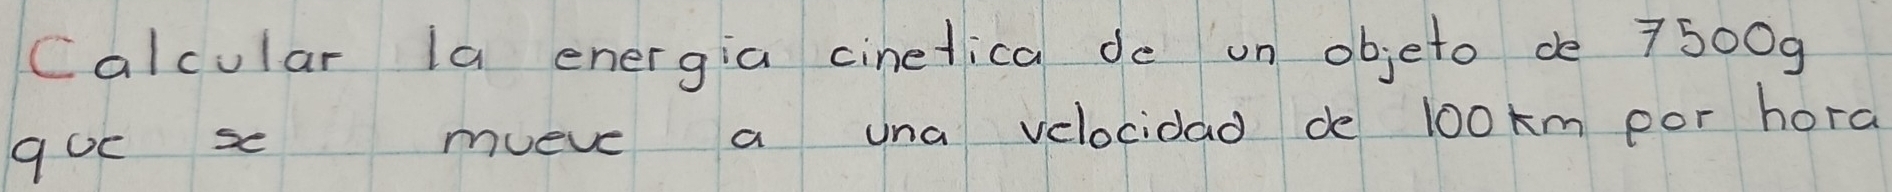 Calcular la energia cinetica de un objeto de 7500g
que se mueve a una velocidad de 100km por hora